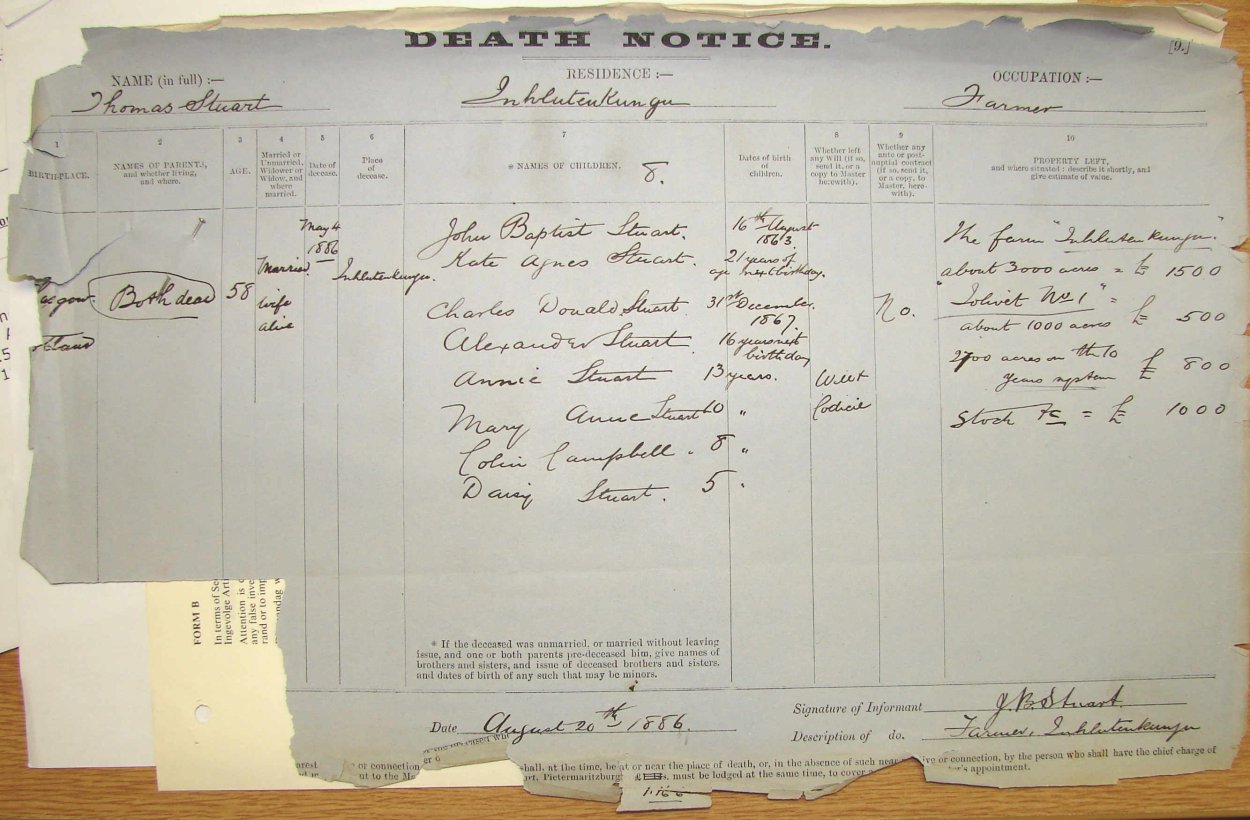 DEATH NOTICE.
[9.]
NAME (in full) :—
Thomas Stuart
RESIDENCE :—
Inhlutenkungu
OCCUPATION :—
Farmer
1
BIRTH-PLACE.
2
NAMES OF PARENTS,
and whether living,
and where.
3
AGE.
4
Married or
Unmarried,
Widower or
Widow, and
where
married.
5
Date of
decease.
6
Place
of
decease.
7
* NAMES OF CHILDREN.
8.
Dates of birth
of
children.
8
Whether left
any Will (if so,
send it, or a
copy to Master
herewith).
9
Whether any
ante or post-
nuptial contract
(if so, send it,
or a copy, to
Master, here-
with).
10
PROPERTY LEFT,
and where situated : describe it shortly, and
give estimate of value.
gow.
tland
Both dead
58
Married
wife
alive
May 4
1886
Inhlutenkungu.
John Baptist Stuart. 16th August 1863.
Kate Agnes Stuart. 21 years of age next birthday.
Charles Donald Stuart. 31st December. 1867.
Alexander Stuart. 16 years next birthday
Annie Stuart 13 years.
Mary Anne Stuart 10 "
Colin Campbell . 8 "
Daisy Stuart. 5 "
Will
Codicil
No.
The farm "Inhlutenkungu".
about 3000 acres = £ 1500
"Jolivet No 1" =
about 1000 acres £ 500
2700 acres on the 10
years system £ 800
Stock &c = £ 1000
* If the deceased was unmarried, or married without leaving
issue, and one or both parents pre-deceased him, give names of
brothers and sisters, and issue of deceased brothers and sisters,
and dates of birth of any such that may be minors.
Date August 20th 1886.
Signature of Informant J. B. Stuart.
Description of do. Farmer, Inhlutenkungu
rest or connection shall, at the time, be at or near the place of death, or, in the absence of such near ive or connection, by the person who shall have the chief charge of
out to the Ma rt, Pietermaritzburg must be lodged at the same time, to cover 's appointment.
FORM B
In terms of Se
Ingevolge Arti
Attention is
any false inve
rand or to imp